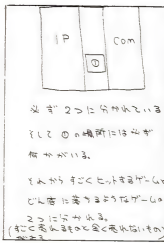 1P
Com
①
必ず2つに分かれている
そして①の場所には必ず
何かがいる。
それからすごくヒットするゲームと
どん底に落ちるようなゲームの
2つに分かれる。
(すごく売れるものと全く売れないもの)